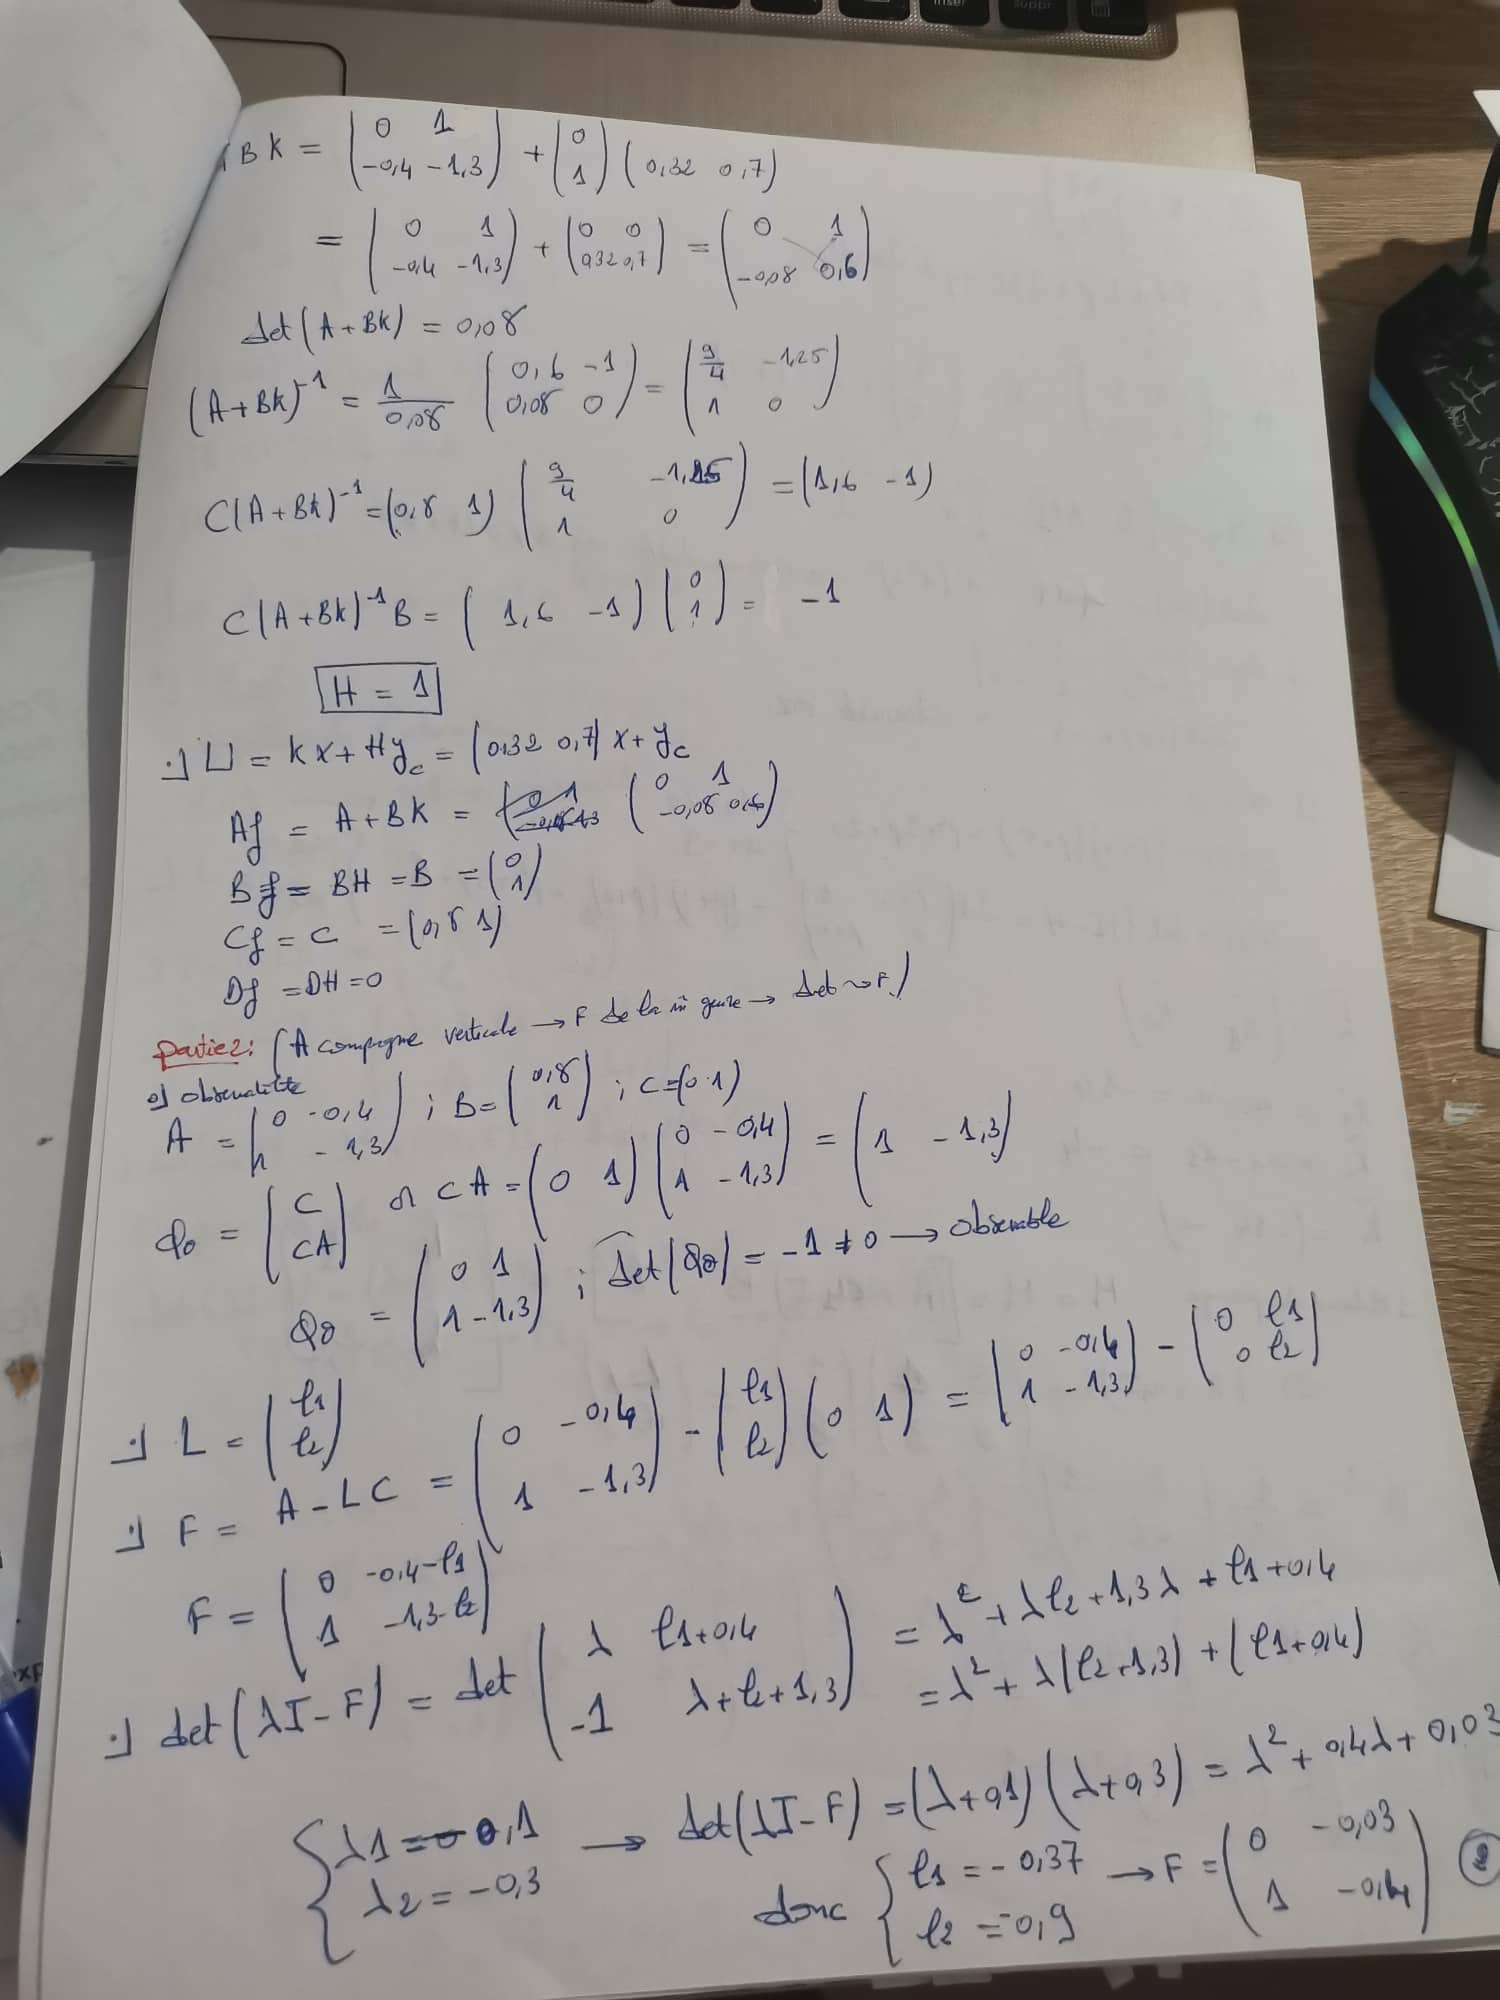 BK = (0 1 ; -0,4 -1,3) + (0 ; 1) (0,32 0,7)
= (0 1 ; -0,4 -1,3) + (0 0 ; 0,32 0,7) = (0 1 ; -0,08 0,6)
det(A+BK) = 0,08
(A+BK)⁻¹ = 1/0,08 (0,6 -1 ; 0,08 0) = (9/4 -1,25 ; 1 0)
C(A+BK)⁻¹ = (0,8 1) (9/4 -1,25 ; 1 0) = (1,6 -1)
C(A+BK)⁻¹B = (1,6 -1) (0 ; 1) = -1
H = 1
:) U = KX + Hyc = (0,32 0,7) X + yc
Af = A+BK = (0 1 ; -0,08 0,6)
Bf = BH = B = (0 ; 1)
Cf = C = (0,8 1)
Df = DH = 0
Partie 2: (A compagne verticale → F de la m̂ genre → det ~ F)
o) observabilité
A = (0 -0,4 ; 1 -1,3) ; B = (0,8 ; 1) ; C = (0 1)
Qo = (C ; CA) or CA = (0 1) (0 -0,4 ; 1 -1,3) = (1 -1,3)
Qo = (0 1 ; 1 -1,3) ; det(Qo) = -1 ≠ 0 → observable
:) L = (l1 ; l2)
:) F = A - LC = (0 -0,4 ; 1 -1,3) - (l1 ; l2) (0 1) = (0 -0,4 ; 1 -1,3) - (0 l1 ; 0 l2)
F = (0 -0,4-l1 ; 1 -1,3-l2)
:) det(λI-F) = det (λ l1+0,4 ; -1 λ+l2+1,3) = λ² + λl2 + 1,3λ + l1 + 0,4
= λ² + λ(l2+1,3) + (l1+0,4)
{ λ1 = -0,1 ; λ2 = -0,3 → det(λI-F) = (λ+0,1)(λ+0,3) = λ² + 0,4λ + 0,03
donc { l1 = -0,37 ; l2 = -0,9 → F = (0 -0,03 ; 1 -0,4)
2
inser
suppr